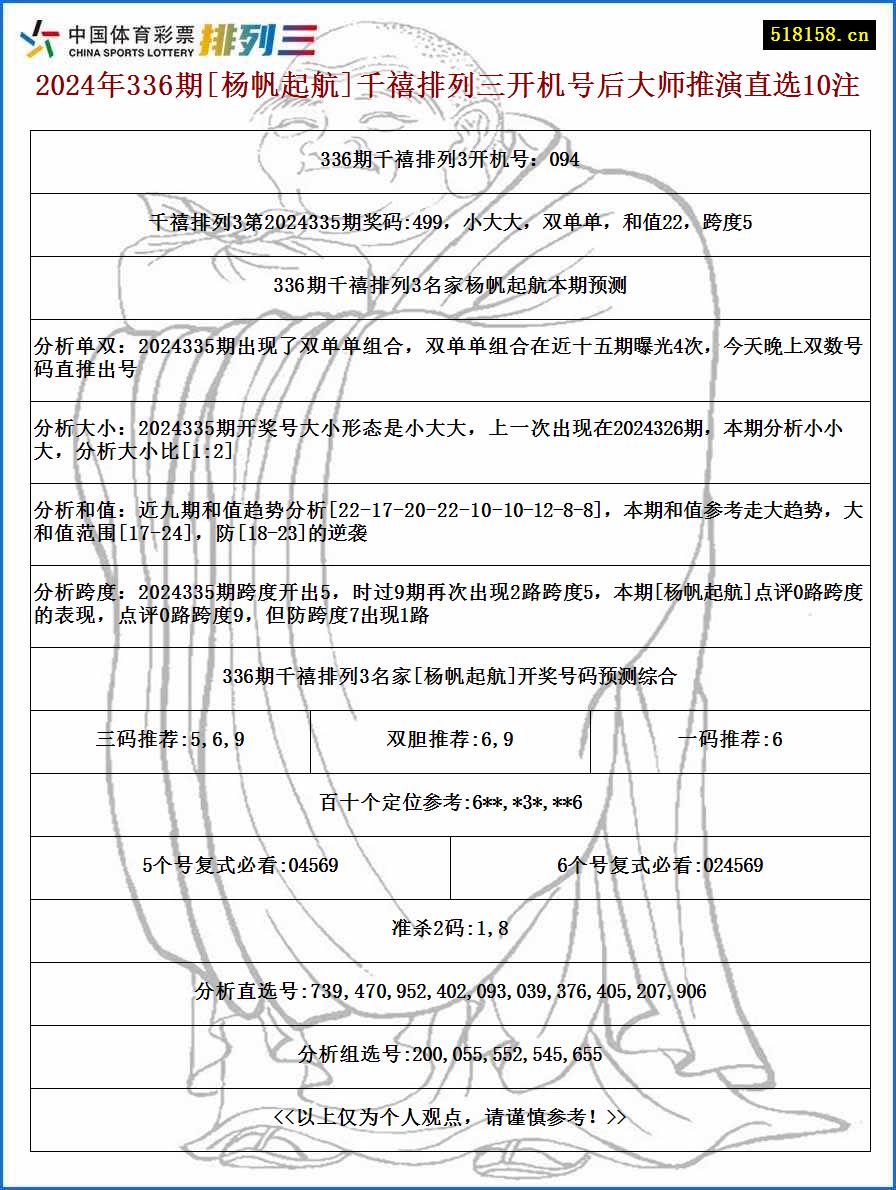 中国体育彩票
CHINA SPORTS LOTTERY
排列三
518158.cn
2024年336期[杨帆起航]千禧排列三开机号后大师推演直选10注
336期千禧排列3开机号：094
千禧排列3第2024335期奖码:499，小大大，双单单，和值22，跨度5
336期千禧排列3名家杨帆起航本期预测
分析单双：2024335期出现了双单单组合，双单单组合在近十五期曝光4次，今天晚上双数号
码直推出号
分析大小：2024335期开奖号大小形态是小大大，上一次出现在2024326期，本期分析小小
大，分析大小比[1:2]
分析和值：近九期和值趋势分析[22-17-20-22-10-10-12-8-8]，本期和值参考走大趋势，大
和值范围[17-24]，防[18-23]的逆袭
分析跨度：2024335期跨度开出5，时过9期再次出现2路跨度5，本期[杨帆起航]点评0路跨度
的表现，点评0路跨度9，但防跨度7出现1路
336期千禧排列3名家[杨帆起航]开奖号码预测综合
三码推荐:5,6,9
双胆推荐:6,9
一码推荐:6
百十个定位参考:6**,*3*,**6
5个号复式必看:04569
6个号复式必看:024569
准杀2码:1,8
分析直选号:739,470,952,402,093,039,376,405,207,906
分析组选号:200,055,552,545,655
<<以上仅为个人观点，请谨慎参考！>>